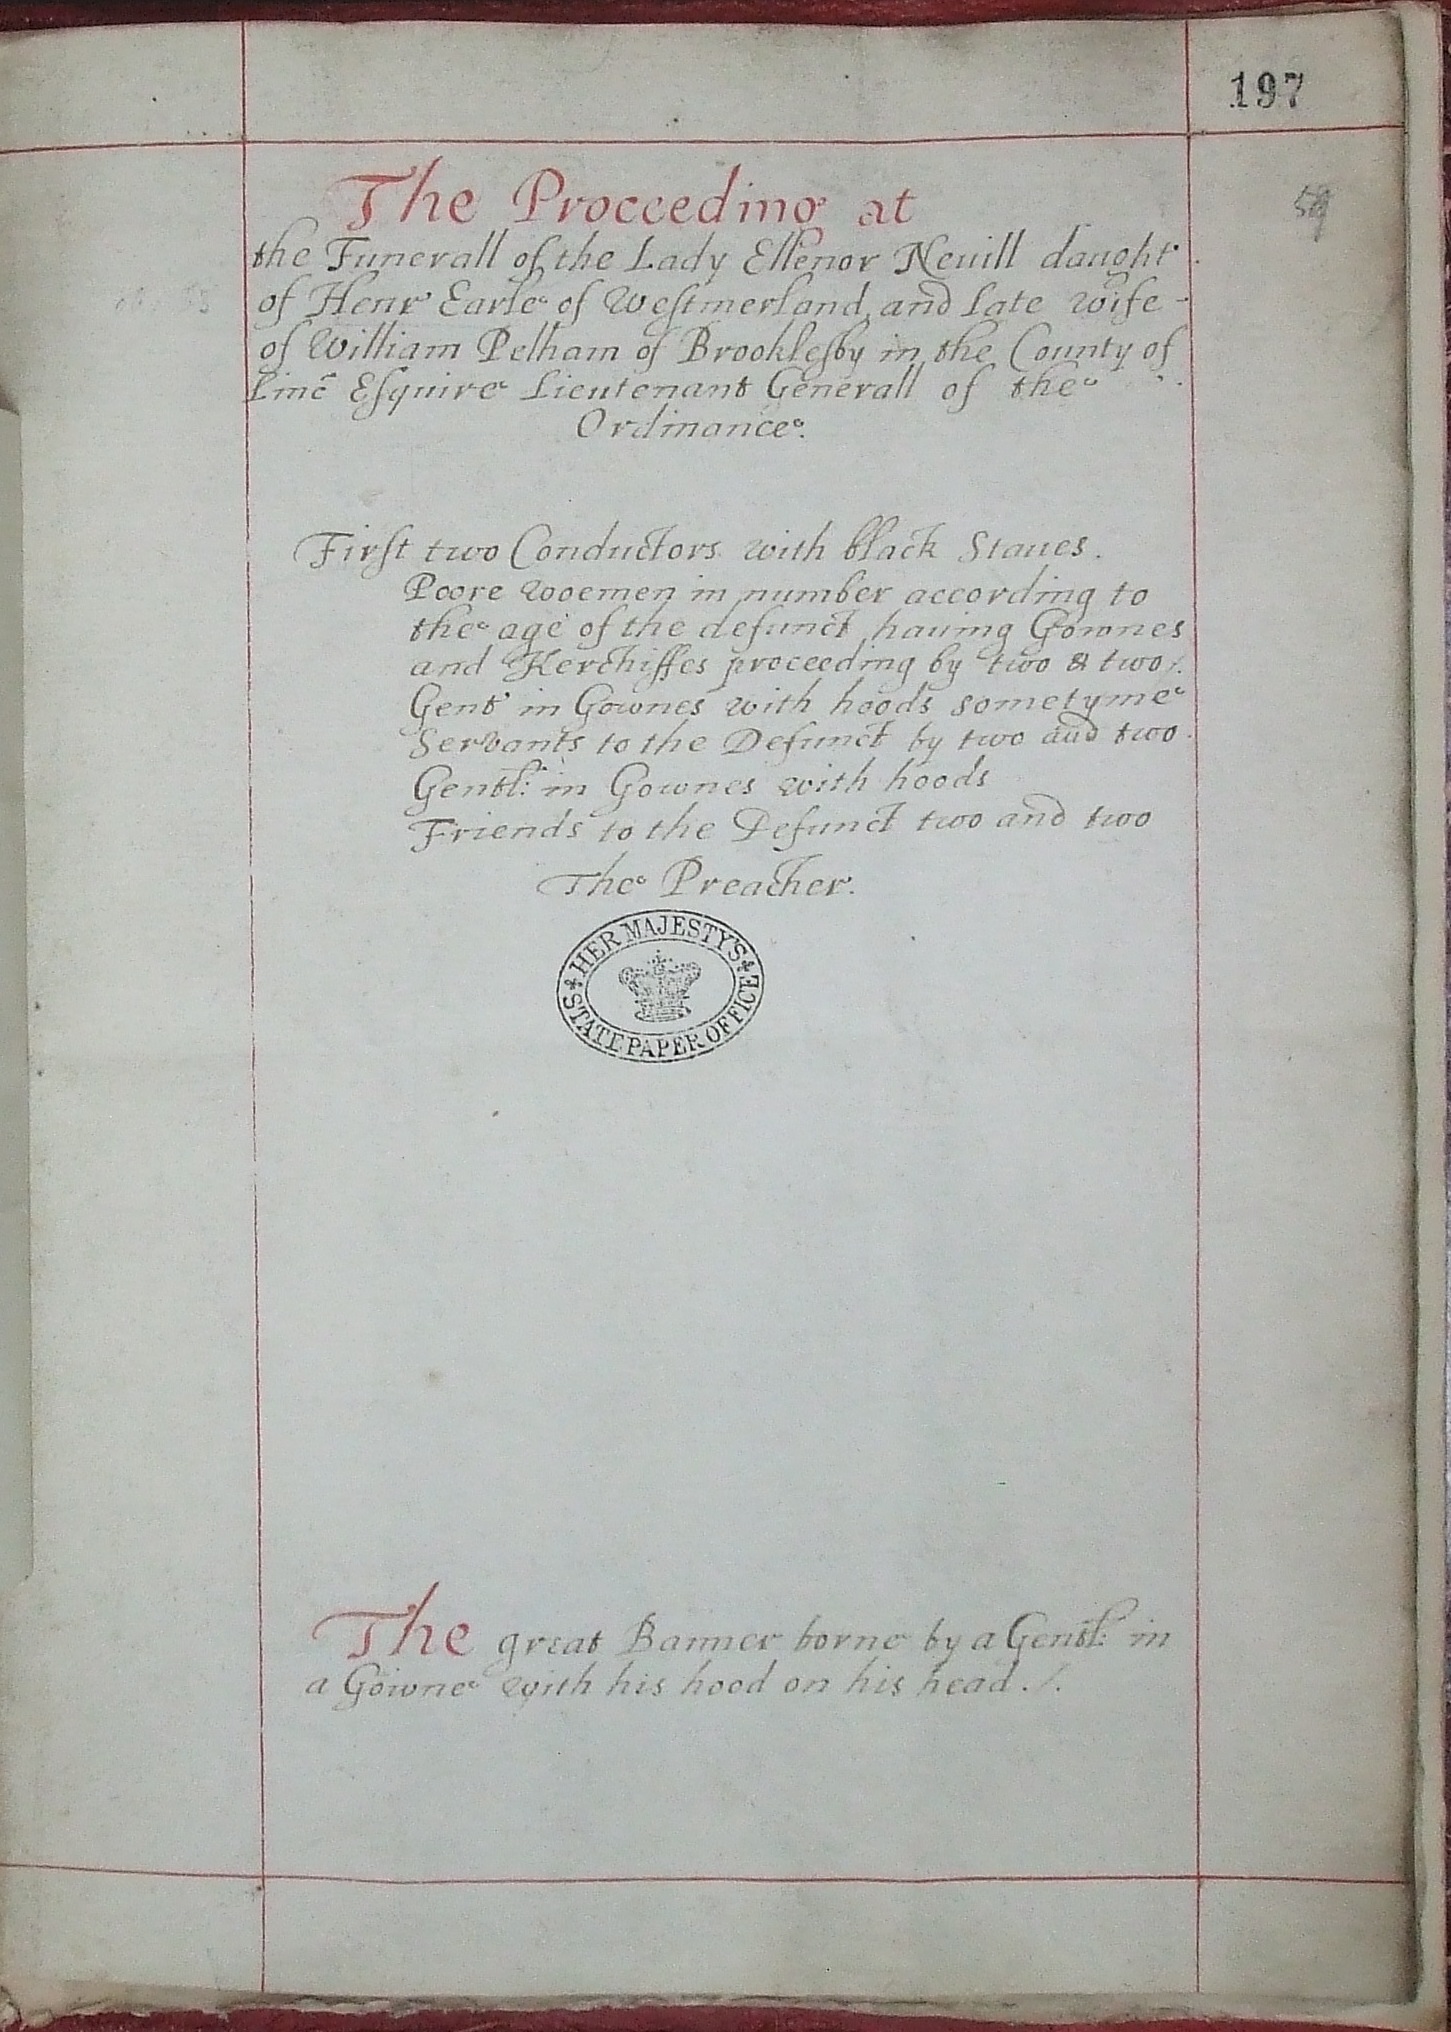 197
59
The Proceeding at
the Funerall of the Lady Ellenor Neuill daught.
of Henr Earle of Westmerland, and late wife -
of William Pelham of Brooklesby in the County of
Linc̄ Esquire Lieutenant Generall of the
Ordinance.
First two Conductors with black Staues.
Poore woemen in number according to
the age of the defunct having Gownes
and Kerchiffes proceeding by two & two /.
Gent in Gownes with hoods sometyme
Servants to the Defunct by two and two.
Gentl: in Gownes with hoods
Friends to the Defunct two and two
The Preacher.
HER MAJESTY'S
STATE PAPER OFFICE
The great Banner borne by a Gentl: in
a Gowne with his hood on his head ./.